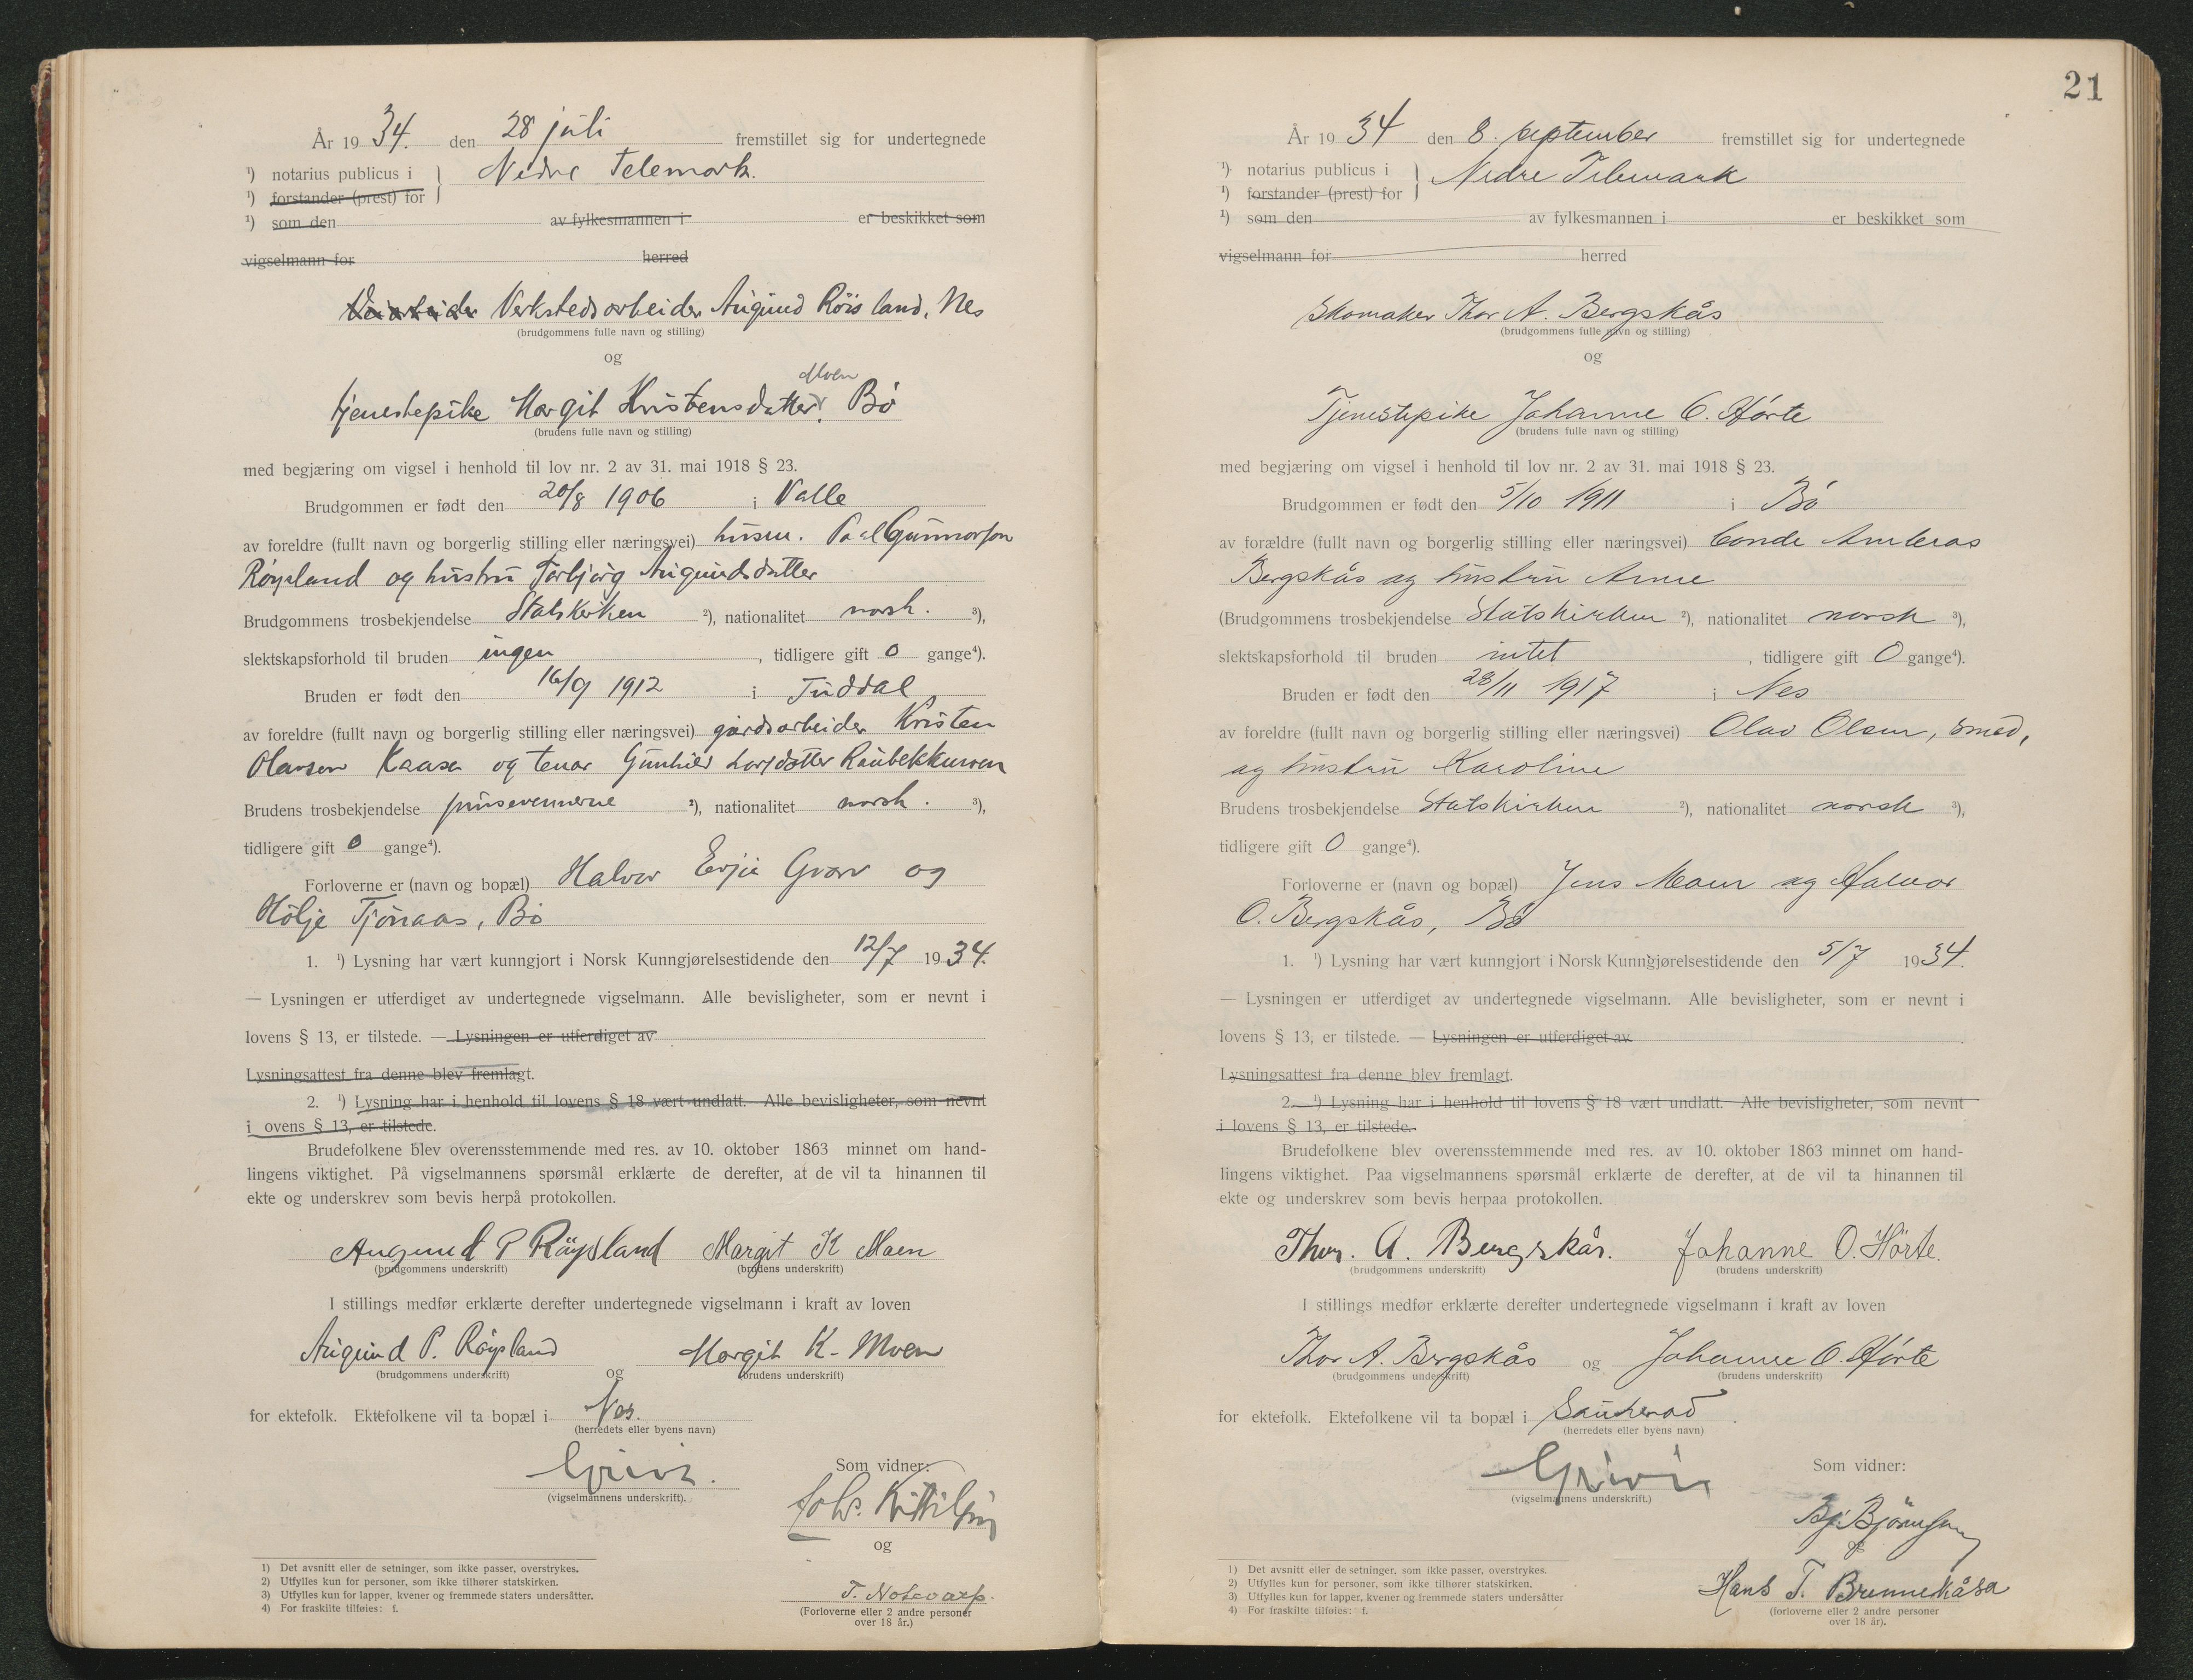 År 19 34. den 28 juli fremstillet sig for undertegnede
¹) notarius publicus i } Nedre Telemark.
¹) forstander (prest) for
¹) som den av fylkesmannen i er beskikket som
vigselmann for herred
Verkstedsarbeider Augund Röisland, Nes
(brudgommens fulle navn og stilling)
og
Moen
tjenestepike Margit Kristensdatter, Bö
(brudens fulle navn og stilling)
med begjæring om vigsel i henhold til lov nr. 2 av 31. mai 1918 § 23.
Brudgommen er født den 20/8 1906 i Valle
av foreldre (fullt navn og borgerlig stilling eller næringsvei) husm. Paal Gunnarson
Röysland og hustru Torbjörg Augundsdatter
Brudgommens trosbekjendelse Statskirken ²), nationalitet norsk. ³),
slektskapsforhold til bruden ingen, tidligere gift 0 gange⁴).
Bruden er født den 16/9 1912 i Tuddal
av foreldre (fullt navn og borgerlig stilling eller næringsvei) gårdsarbeider Kristen
Olavsen Kaasa og Gunhild Larsdatter
Brudens trosbekjendelse pinsevennerne ²), nationalitet norsk. ³),
tidligere gift 0 gange⁴).
Forloverne er (navn og bopæl) Halvor Evju Grave og
Hölje Tjönaas, Bö
1. ¹) Lysning har vært kunngjort i Norsk Kunngjørelsestidende den 12/7 1934.
— Lysningen er utferdiget av undertegnede vigselmann. Alle bevisligheter, som er nevnt i
lovens § 13, er tilstede. — Lysningen er utferdiget av
Lysningsattest fra denne blev fremlagt.
2. ¹) Lysning har i henhold til lovens § 18 vært undlatt. Alle bevisligheter, som nevnt
i ovens § 13, er tilstede.
Brudefolkene blev overensstemmende med res. av 10. oktober 1863 minnet om hand-
lingens viktighet. På vigselmannens spørsmål erklærte de derefter, at de vil ta hinannen til
ekte og underskrev som bevis herpå protokollen.
Augund P Röysland Margit K Moen
(brudgommens underskrift) (brudens underskrift)
I stillings medfør erklærte derefter undertegnede vigselmann i kraft av loven
Augund P. Röysland og Margit K. Moen
(brudgommens underskrift) (brudens underskrift)
for ektefolk. Ektefolkene vil ta bopæl i Nes.
(herredets eller byens navn)
(vigselmannens underskrift).
Som vidner:
og
T. Notevarp.
(Forloverne eller 2 andre personer
over 18 år.)
1) Det avsnitt eller de setninger, som ikke passer, overstrykes.
2) Utfylles kun for personer, som ikke tilhører statskirken.
3) Utfylles kun for lapper, kvener og fremmede staters undersåtter.
4) For fraskilte tilføies: f.
21
År 19 34 den 8. september fremstillet sig for undertegnede
¹) notarius publicus i } Nedre Telemark
¹) forstander (prest) for
¹) som den av fylkesmannen i er beskikket som
vigselmann for herred
Skomaker Thor A. Bergskås
(brudgommens fulle navn og stilling)
og
Tjenestepike Johanne O. Hörte
(brudens fulle navn og stilling)
med begjæring om vigsel i henhold til lov nr. 2 av 31. mai 1918 § 23.
Brudgommen er født den 5/10 1911 i Bö
av forældre (fullt navn og borgerlig stilling eller næringsvei) bonde Andreas
Bergskås og hustru Anne
(Brudgommens trosbekjendelse Statskirken ²), nationalitet norsk ³),
slektskapsforhold til bruden intet, tidligere gift 0 gange⁴).
Bruden er født den 28/11 1917 i Nes
av foreldre (fullt navn og borgerlig stilling eller næringsvei) Olav Olsen, smed,
og hustru Karoline
Brudens trosbekjendelse Statskirken ²), nationalitet norsk ³),
tidligere gift 0 gange⁴).
Forloverne er (navn og bopæl) Jens Moen og Halvor
O. Bergskås, Bö
1. ¹) Lysning har vært kunngjort i Norsk Kunngjørelsestidende den 5/7 1934.
— Lysningen er utferdiget av undertegnede vigselmann. Alle bevisligheter, som er nevnt i
lovens § 13, er tilstede. — Lysningen er utferdiget av
Lysningsattest fra denne blev fremlagt.
2. ¹) Lysning har i henhold til lovens § 18 vært undlatt. Alle bevisligheter, som nevnt
i lovens § 13, er tilstede.
Brudefolkene blev overensstemmende med res. av 10. oktober 1863 minnet om hand-
lingens viktighet. Paa vigselmannens spørsmål erklærte de derefter, at de vil ta hinannen til
ekte og underskrev som bevis herpaa protokollen.
Thor. A. Bergskås. Johanne O. Hörte.
(brudgommens underskrift) (brudens underskrift)
I stillings medfør erklærte derefter undertegnede vigselmann i kraft av loven
Thor A. Bergskås og Johanne O. Hörte
(brudgommens underskrift) (brudens underskrift)
for ektefolk. Ektefolkene vil ta bopæl i Sauherad.
(herredets eller byens navn)
(vigselmannens underskrift.)
Som vidner:
Bj. Björnson
og
Hans T. Brennekåsa
(forloverne eller 2 andre personer
over 18 år).
1) Det avsnitt eller de setninger, som ikke passer, overstrykes.
2) Utfylles kun for personer, som ikke tilhører statskirken.
3) Utfylles kun for lapper, kvener og fremmede staters undersåtter
4) For fraskilte tilføies: f.